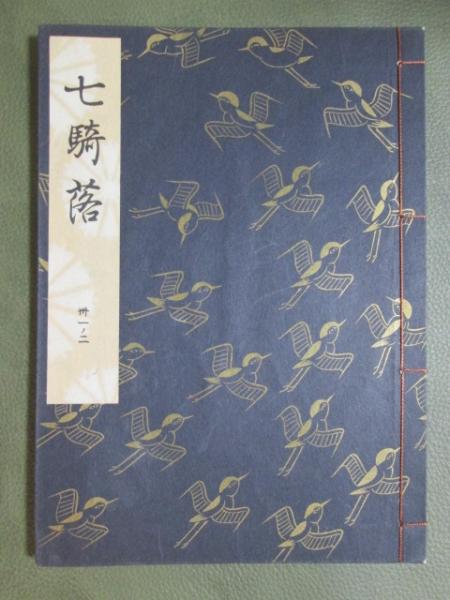 七騎落
卅一ノ二